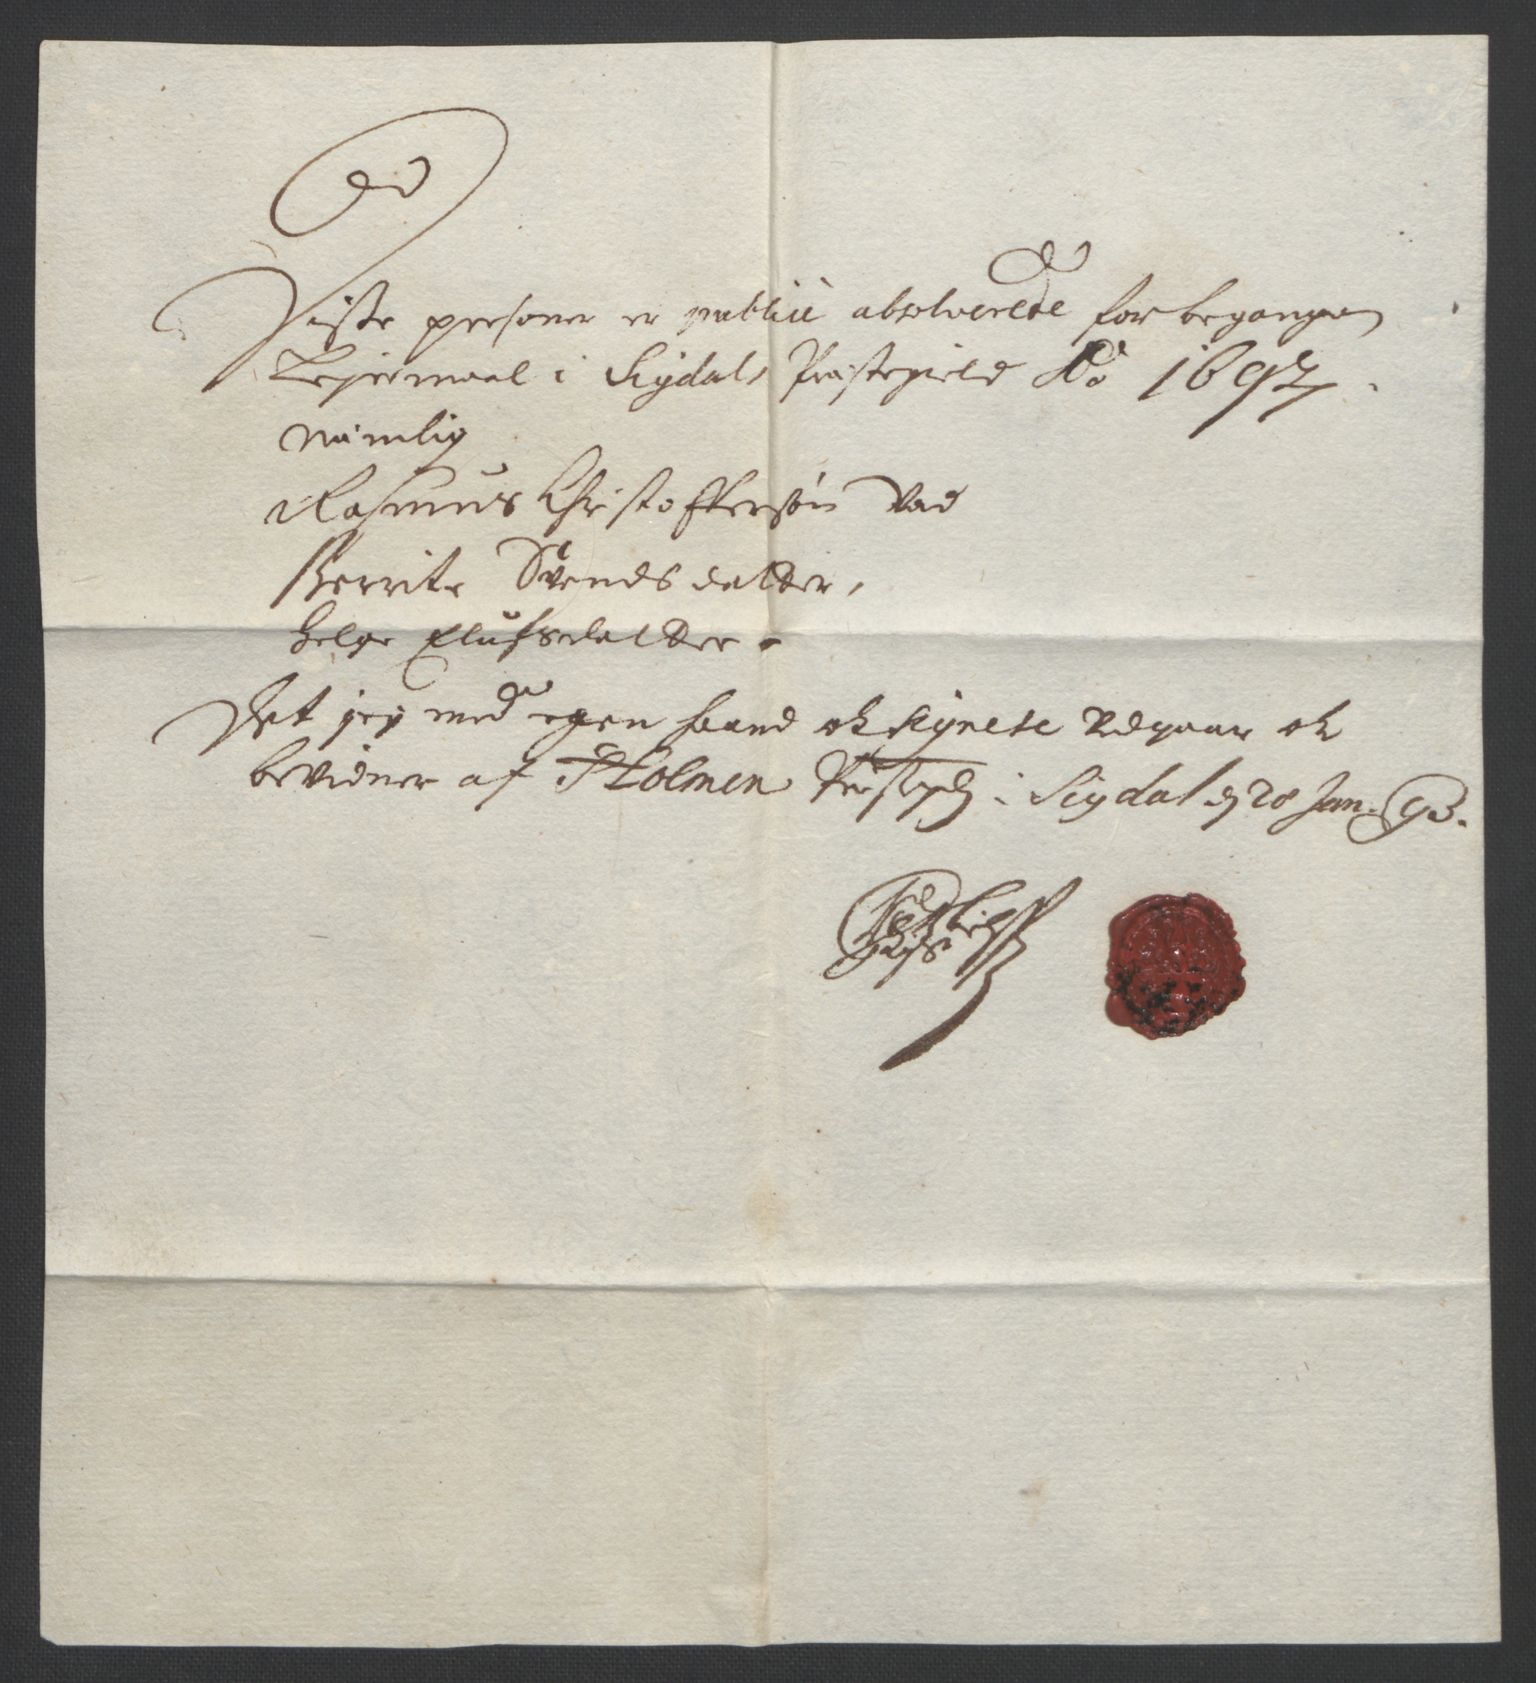 Disse personer er publicè absolverede for begangen
Leyermaal i Sigdals Præstegield Ao 1692.
Nemlig
Rasmus Christoffersøn Vad
Berrite Svends daatter,
Helge Elufsdaatter.
Det jeg med egen haand ok signete Udgaar ok
bevidner af Holmen Præstegd i Sigdal d 28 Jan. 93.